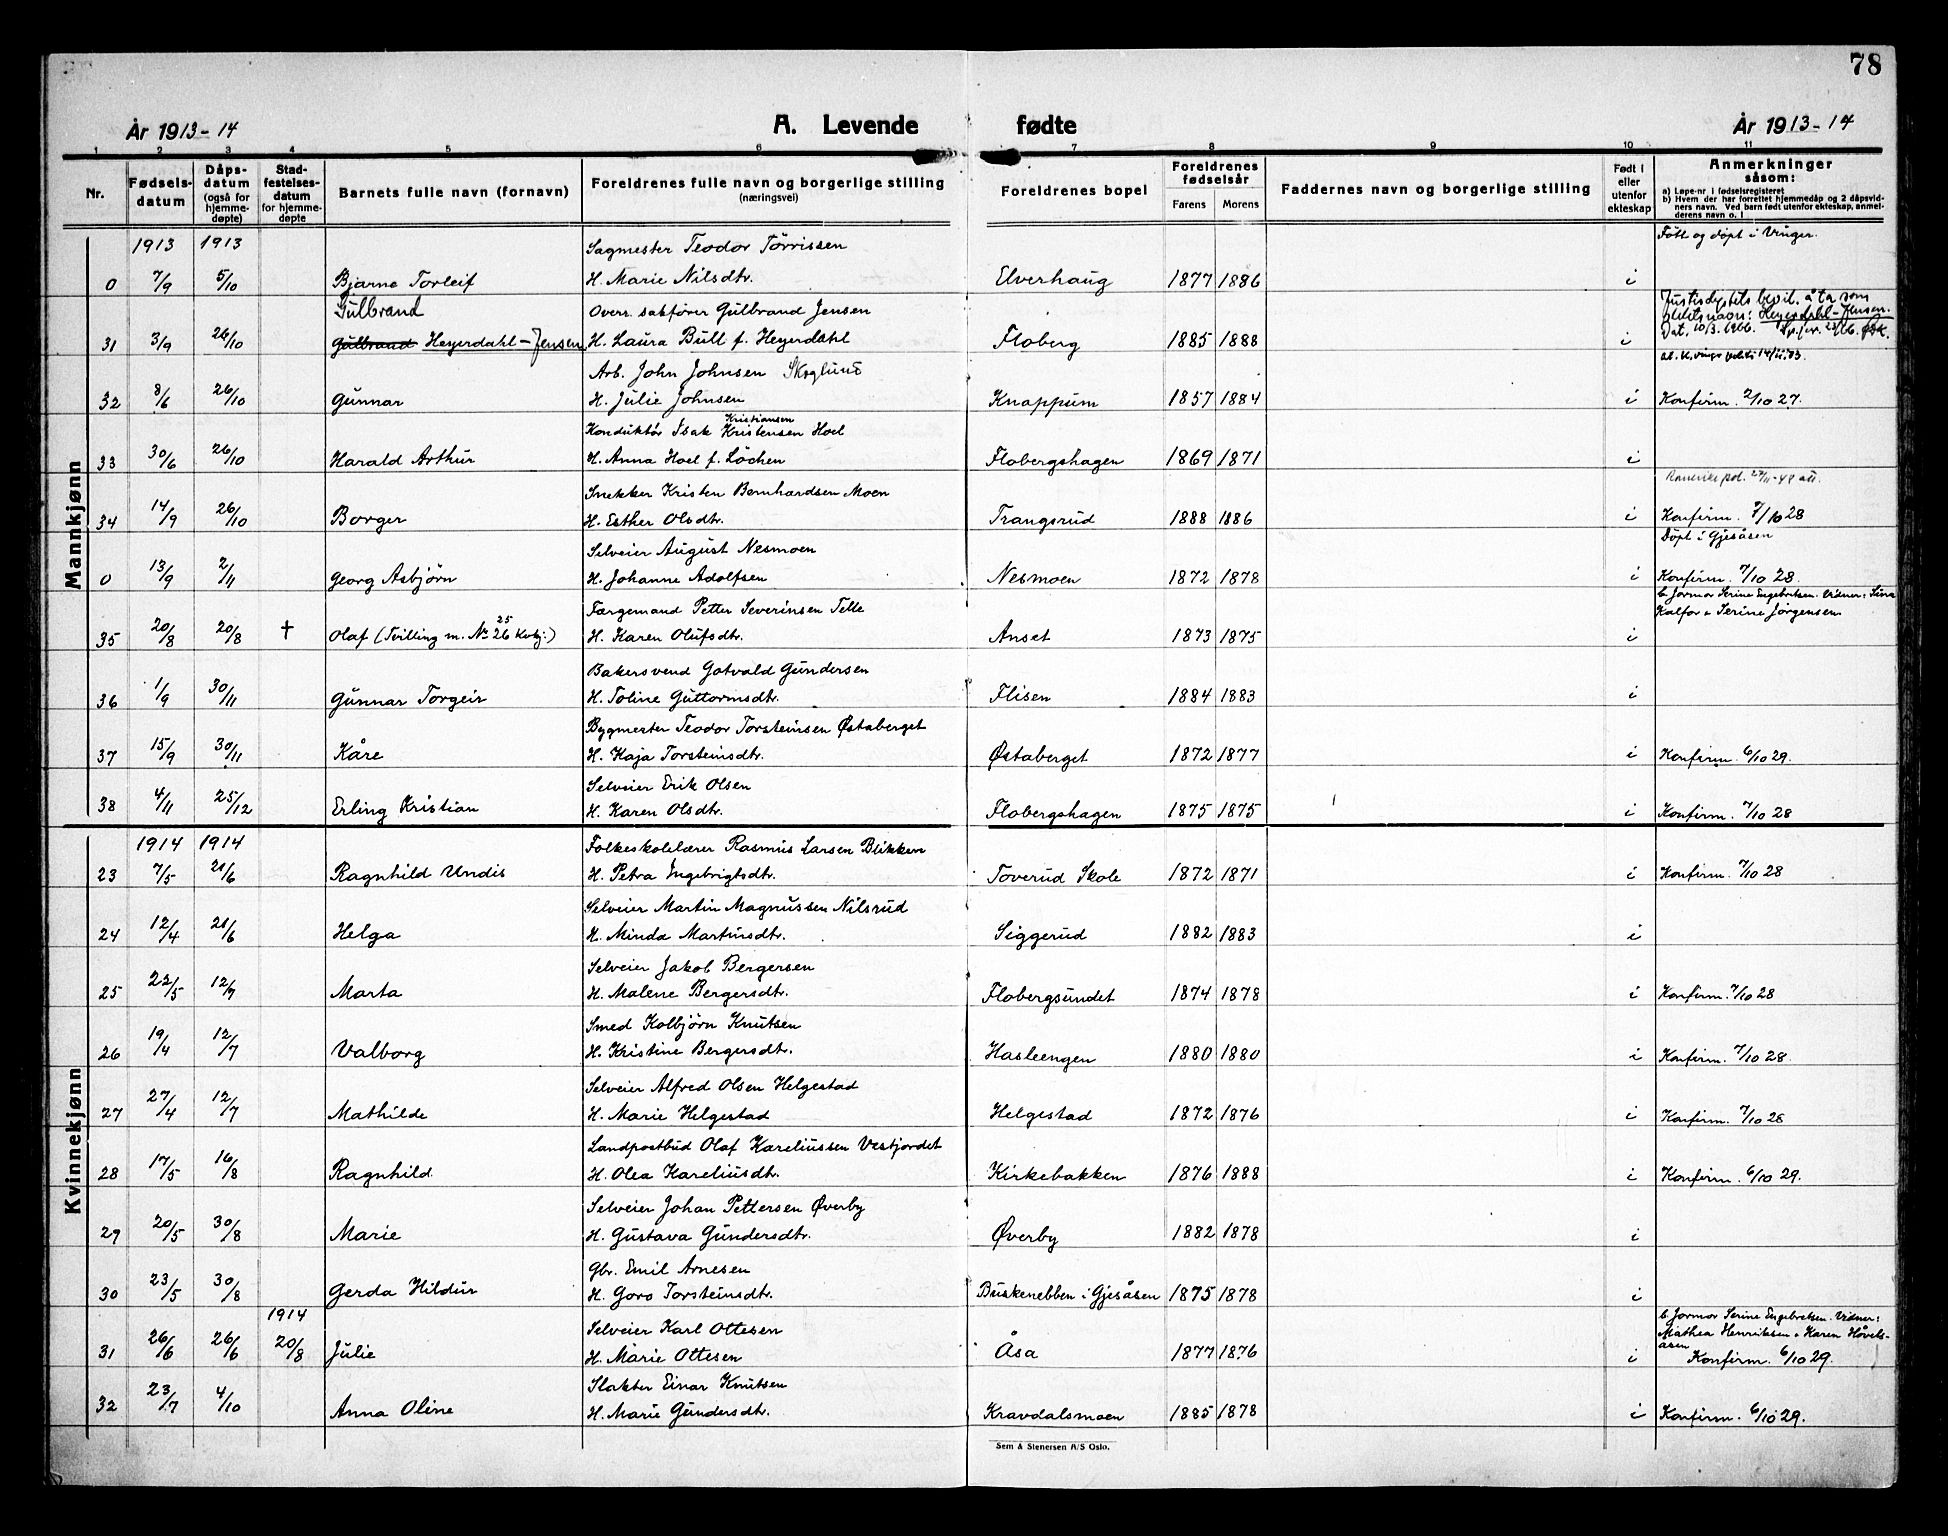 78
År 1913-14 A. Levende fødte År 1913-14
1 2 3 4 5 6 7 8 9 10 11
Nr. Fødselsdatum Dåpsdatum (også for hjemmedøpte) Stadfestelsesdatum for hjemmedøpte Barnets fulle navn (fornavn) Foreldrenes fulle navn og borgerlige stilling (næringsvei) Foreldrenes bopel Foreldrenes fødselsår Farens Morens Faddernes navn og borgerlige stilling Født i eller utenfor ekteskap Anmerkninger såsom:
a) Løpe-nr i fødselsregisteret
b) Hvem der har forrettet hjemmedåp og 2 dåpsvidners navn. Ved barn født utenfor ekteskap, anmelderens navn o. l
Mannkjønn
1913 1913 Sagmester Teodor Törrissen Født og döpt i Vinger.
0 7/9 5/10 Bjarne Torleif H. Marie Nilsdtr. Elverhaug 1877 1886 i
Gulbrand Overr. sakfører Gulbrand Jensen Justisdptets bevil. å ta som slektsnavn: Heyerdahl-Jensen.
31 3/9 26/10 Gulbrand Heyerdahl-Jensen H. Laura Bull f. Heyerdahl Floberg 1885 1888 i Dat. 10/3.1966.
Arb. John Johnsen Skoglund
32 8/6 26/10 Gunnar H. Julie Johnsen Knappum 1857 1884 i Konfirm. 2/10 27.
Kristiansen
Konduktör Isak Kristensen Hoel
33 30/6 26/10 Harald Arthur H. Anna Hoel f. Löchen Flobergshagen 1869 1871 i
Snekker Kristen Bernhardsen Moen
34 14/9 26/10 Borger H. Esther Olsdtr. Trangsrud 1888 1886 i Konfirm. 7/10 28
Selveier August Nesmoen Döpt i Gjesåsen
0 13/9 2/11 Georg Asbjörn H. Johanne Adolfsen Nesmoen 1872 1878 i Konfirm. 7/10 28.
Færgemand Petter Severinsen Telle b. Jormor Serine Engebretsen. Vidner: Lina
35 20/8 20/8 † Olaf (Tvilling m. No 26 25 Kvkj.) H. Karen Olufsdtr. Anset 1873 1875 i Kalfor & Serine Jørgensen
Bakersvend Gotvald Gundersen
36 1/9 30/11 Gunnar Torgeir H. Toline Guttormsdtr. Flisen 1884 1883 i
Bygmester Teodor Torsteinsen Østaberget
37 15/9 30/11 Kåre H. Kaja Torsteinsdtr. Østaberget 1872 1877 i Konfirm. 6/10 29.
Selveier Erik Olsen
38 4/11 25/12 Erling Kristian H. Karen Olsdtr. Flobergshagen 1875 1875 i Konfirm. 7/10 28
Kvinnekjønn
1914 1914 Folkeskolelærer Rasmus Larsen Blikken
23 7/5 21/6 Ragnhild Undis H. Petra Ingebrigtsdtr. Toverud Skole 1872 1871 i Konfirm. 7/10 28
Selveier Martin Magnussen Nilsrud
24 12/4 21/6 Helga H. Minda Martinsdtr. Siggerud 1882 1883 i
Selveier Jakob Bergersen
25 22/5 12/7 Marta H. Malene Bergersdtr. Flobergsundet 1874 1878 i Konfirm. 7/10 28
Smed Kolbjörn Knutsen
26 19/4 12/7 Valborg H. Kristine Bergersdtr. Hasleengen 1880 1880 i Konfirm. 7/10 28.
Selveier Alfred Olsen Helgestad
27 27/4 12/7 Mathilde H. Marie Helgestad Helgestad 1872 1876 i Konfirm. 7/10 28
Landpostbud Olaf Kareliussen Vestjordet
28 17/5 16/8 Ragnhild. H. Olea Kareliusdtr. Kirkebakken 1876 1888 i Konfirm. 6/10 29.
Selveier Johan Pettersen Øverby
29 20/5 30/8 Marie H. Gustava Gundersdtr. Øverby 1882 1878 i
Gbr. Emil Arnesen
30 23/5 30/8 Gerda Hildur H. Goro Torsteinsdtr. Buskenebben i Gjesåsen 1875 1878 i
1914 Selveier Karl Ottesen b. Jormor Serine Engebretsen. Vidner: Mathea Henriksen & Karen Håvelsåsen
31 26/6 26/6 20/8 Julie H. Marie Ottesen Åsa 1877 1876 i Konfirm. 6/10 29.
Slakter Einar Knutsen
32 23/7 4/10 Anna Oline H. Marie Gundersdtr. Kravdalsmoen 1885 1878 i Konfirm. 6/10 29.
Sem & Stenersen A/S Oslo.